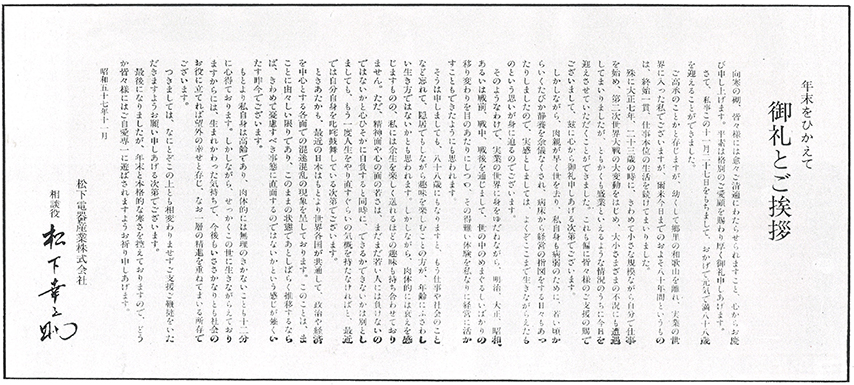 年末をひかえて
御礼とご挨拶
向寒の候、皆々様には愈々ご清適にわたらせられますこと、心からお慶
び申し上げます。平素は格別のご愛顧を賜わり厚く御礼申しあげます。
さて、私事この十一月二十七日をもちまして、おかげで元気で満八十八歳
を迎えることができました。
ご高承のことかと存じますが、幼くして郷里の和歌山を離れ、実業の世
界に入った私でございますが、爾来今日までのおおよそ八十年間というもの
は、終始一貫、仕事本位の生活を続けてまいりました。
殊に大正七年、二十三歳の時に、きわめて小さな規模ながら自分で仕事
を始め、第二次世界大戦の大変動をはじめ、大小さまざまの不況にも遭遇
してまいりましたが、ともかくも盛業といえるような情況のうちに今日を
迎えさせていただくことができました。これも偏に皆々様のご支援の賜で
ございまして、茲に心から御礼申しあげる次第でございます。
しかしながら、肉親が早く世を去り、私自身も病弱のために、若い頃か
らいくたびか静養を余儀なくされ、病床から経営の指図をする日々もあっ
たりしましたので、実感としましては、よくぞここまで生きながらえたも
のという思いが身に迫るのでございます。
そのようなわけで、実業の世界に身をゆだねながら、明治、大正、昭和
あるいは戦前、戦中、戦後を通じまして、世の中のめまぐるしいばかりの
移り変わりを目のあたりにしつつ、その得難い体験を私なりに経営に活か
すこともできたようにも思われます。
そうは申しましても、八十八歳にもなりますと、もう仕事や社会のこと
など忘れて、隠居でもしながら趣味を楽しむことの方が、年齢にふさわし
い生き方ではないかとも思われます。しかしながら、肉体的には衰えを感
じますものの、私には余生を楽しく送れるほどの趣味も持ち合わせており
ません。ただ、精神面や心の面の若さは、まだまだ若い人には負けないの
ではないかと心ひそかに自負すると同時に、できるかできないかは別とし
ましても、もう一度人生をやり直すぐらいの気概を持たなければと、最近
では自分自身を叱咤鼓舞している次第でございます。
ときあたかも、最近の日本はもとより世界各国が共通して、政治や経済
を中心とする各面での混迷混乱の現象を呈しております。このことは、ま
ことに由々しい限りであり、このままの状態であとしばらく推移するなら
ば、きわめて憂慮すべき事態に直面するのではないかという感じが強くい
たす昨今でございます。
もとより私自身は高齢であり、肉体的には無理のきかないことも十二分
に心得ております。しかしながら、せっかくこの世に生きながらえており
ますからには、生まれかわった気持ちで、今後もいささかなりとも社会の
お役に立てれば望外の幸せと存じ、なお一層の精進を重ねてまいる所存で
ございます。
つきましては、なにとぞこの上とも相変わりませずご支援ご鞭撻をいた
だきますようお願い申しあげる次第でございます。
最後になりましたが、年末と本格的な寒さを控えておりますので、どう
か皆々様にはご自愛専一に遊ばされますようお祈り申しあげます。
昭和五十七年十一月
松下電器産業株式会社
相談役 松下幸之助